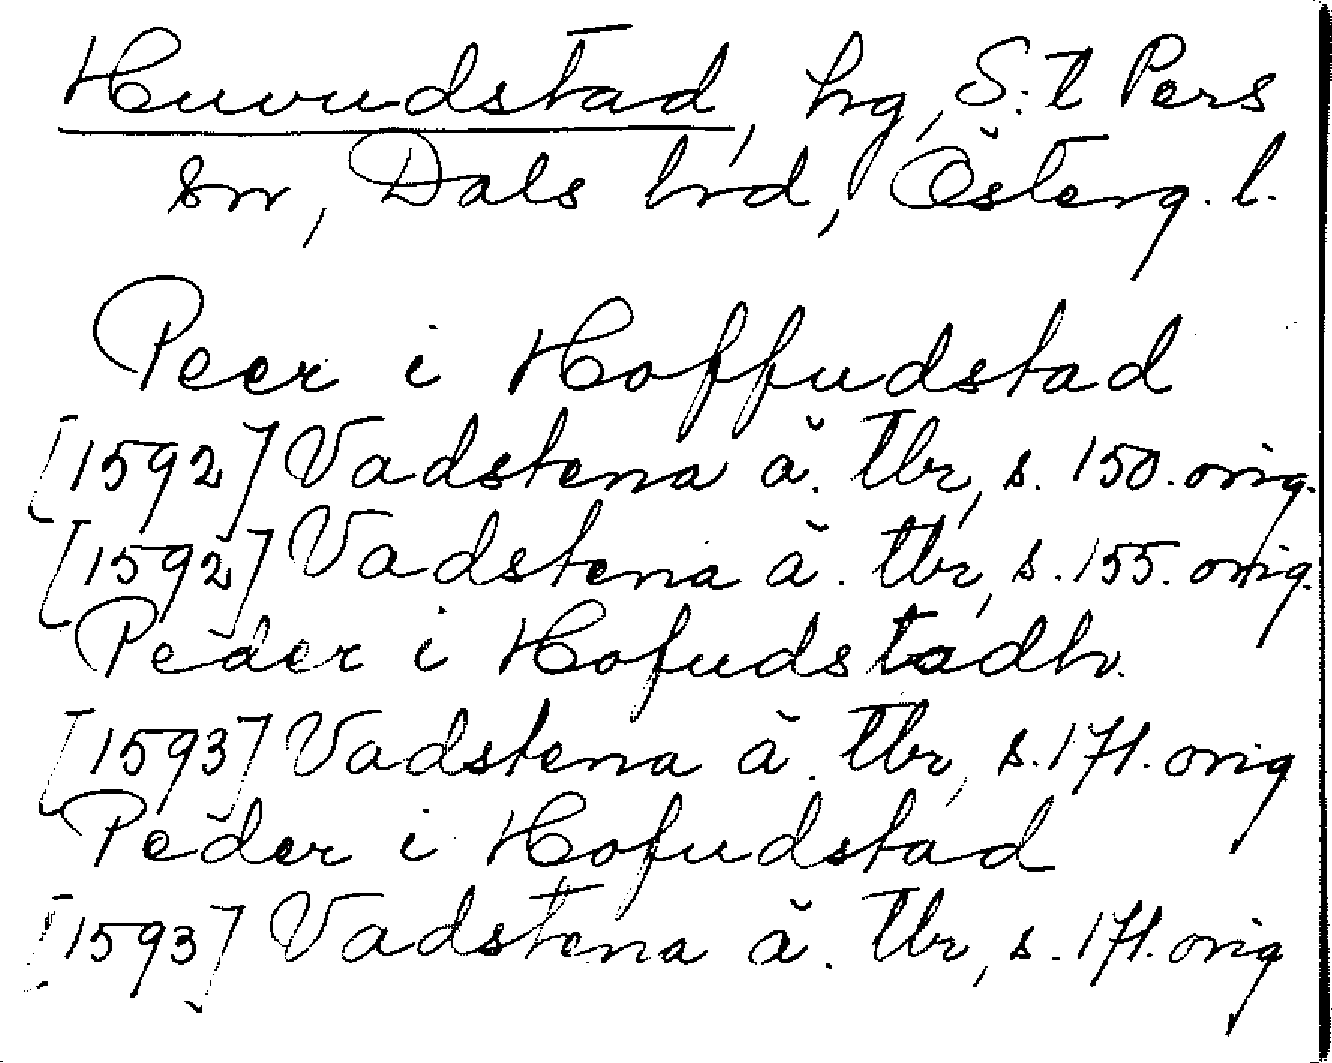 Huvudstad, hg, S:t Pers
sn, Dals hd, Österg. l.
Peer i Hoffudstad
[1592] Vadstena ä. tbr, s. 150. orig.
[1592] Vadstena ä. tbr, s. 155. orig.
Peder i Hofudstadh.
[1593] Vadstena ä. tbr, s. 171. orig
Peder i Hofudstad
[1593] Vadstena ä. tbr, s. 171. orig